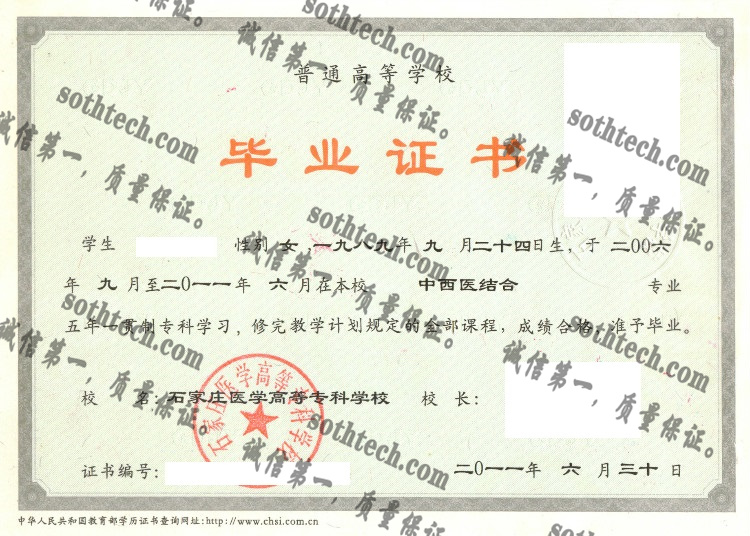 普通高等学校
毕业证书
学生 性别 女，一九八九年 九 月二十四日生，于 二00六
年 九 月至二0一一年 六 月在本校 中西医结合 专业
五年一贯制专科学习，修完教学计划规定的全部课程，成绩合格，准予毕业。
校 名：石家庄医学高等专科学校 校 长：
石家庄医学高等专科学校
证书编号： 二0一一年 六 月三十日
中华人民共和国教育部学历证书查询网址：http://www.chsi.com.cn
sothtech.com
诚信第一，质量保证。
sothtech.com
诚信第一，质量保证。
sothtech.com
诚信第一，质量保证。
sothtech.com
诚信第一，质量保证。
sothtech.com
诚信第一，质量保证。
sothtech.com
诚信第一，质量保证。
sothtech.com
诚信第一，质量保证。
sothtech.com